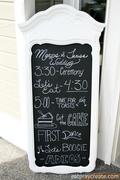 Marcos & Tessa's
Wedding
3:30-Ceremony
Let's Eat-4:30
5:00-TIME for the
TOASTS
Cut the CAKE
FIRST Dance
Let's BOOGIE
ADIOS
eatprayCreate.com